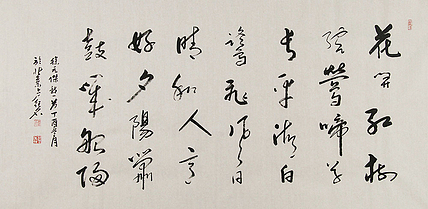 花開紅樹
亂鶯啼草
長平湖白
鷺飛風日
晴和人意
好夕陽簫
鼓幾船歸
徐元傑詩一首丁酉
於北京